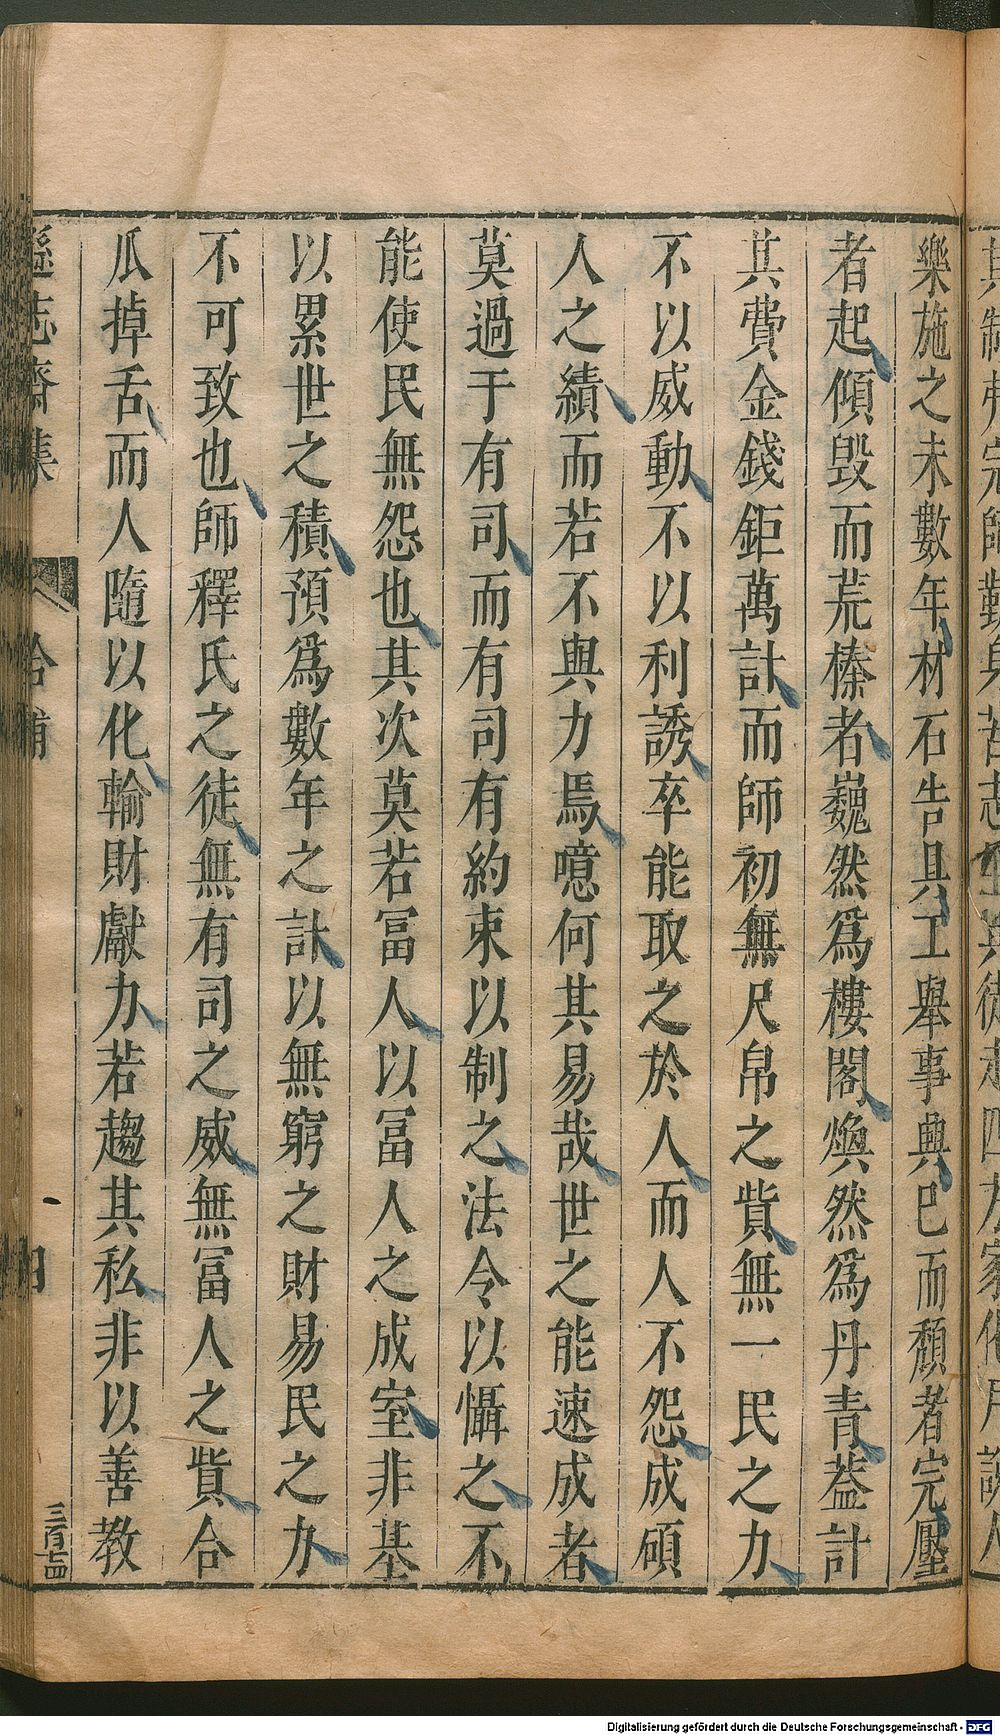 樂施之未數年材石告具工舉事典巳而頹者完壓
者起傾毀而荒榛者巍然爲樓閣煥然爲丹青葢計
其費金錢鉅萬計而師初無尺帛之貲無一民之力
不以威動不以利誘卒能取之於人而人不怨成碩
人之績而若不與力焉噫何其易哉世之能速成者
莫過于有司而有司有約束以制之法令以懾之不
能使民無怨也其次莫若冨人以冨人之成室非基
以累世之積預爲數年之計以無窮之財易民之力
不可致也師釋氏之徒無有司之威無冨人之貲合
瓜掉舌而人隨以化輸財獻力若趨其私非以善教
遜志齋集
拾補
三百十四
Digitalisierung gefördert durch die Deutsche Forschungsgemeinschaft - DFG